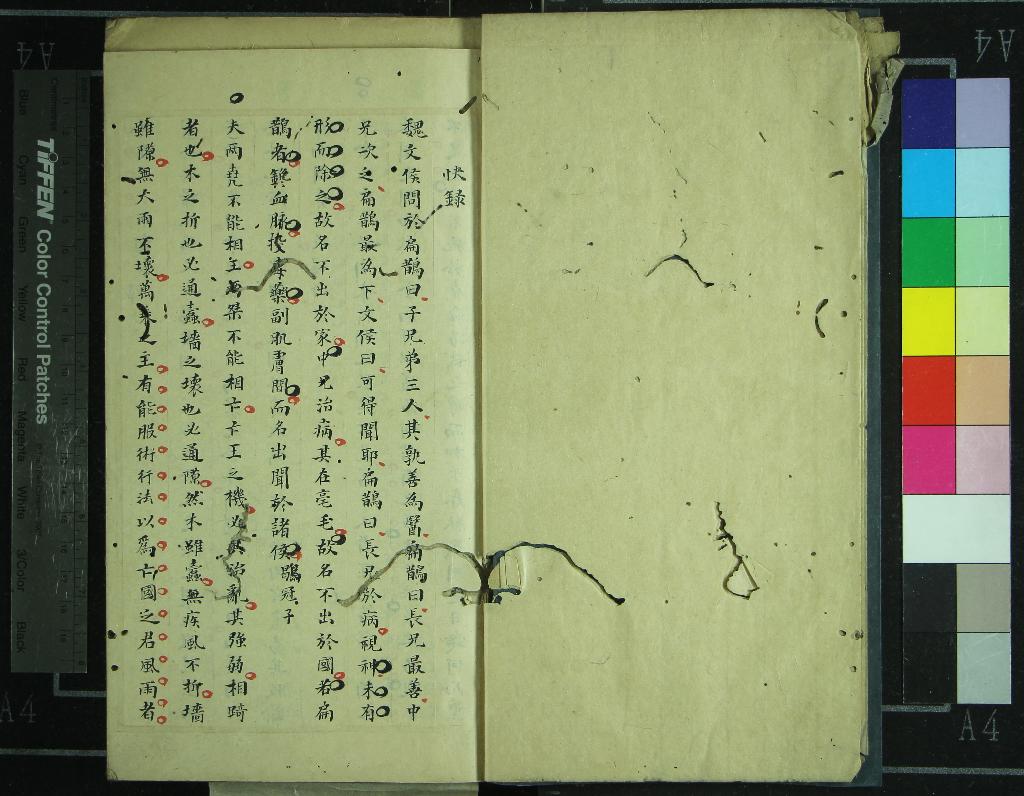 快録
魏文侯問於扁鵲曰子兄弟三人其孰善為醫扁鵲曰長兄最善中
兄次之扁鵲最為下文侯曰可得聞耶扁鵲曰長兄於病視神未有
形而除之故名不出於家中兄治病其在毫毛故名不出於國若扁
鵲者鑱血脉投毒藥副肌膚間而名出聞於諸侯鶡冠子
夫兩堯不能相王兩桀不能相亡亡王之機必其治亂其強弱相踦
者也木之折也必通蠹墻之壞也必通隙然木雖蠹無疾風不折墻
雖隙無大雨不壞萬乘之主有能服術行法以為亡國之君風雨者
TIFFEN Color Control Patches
Blue Cyan Green Yellow Red Magenta White 3/Color Black
A4
A4
A4
A4